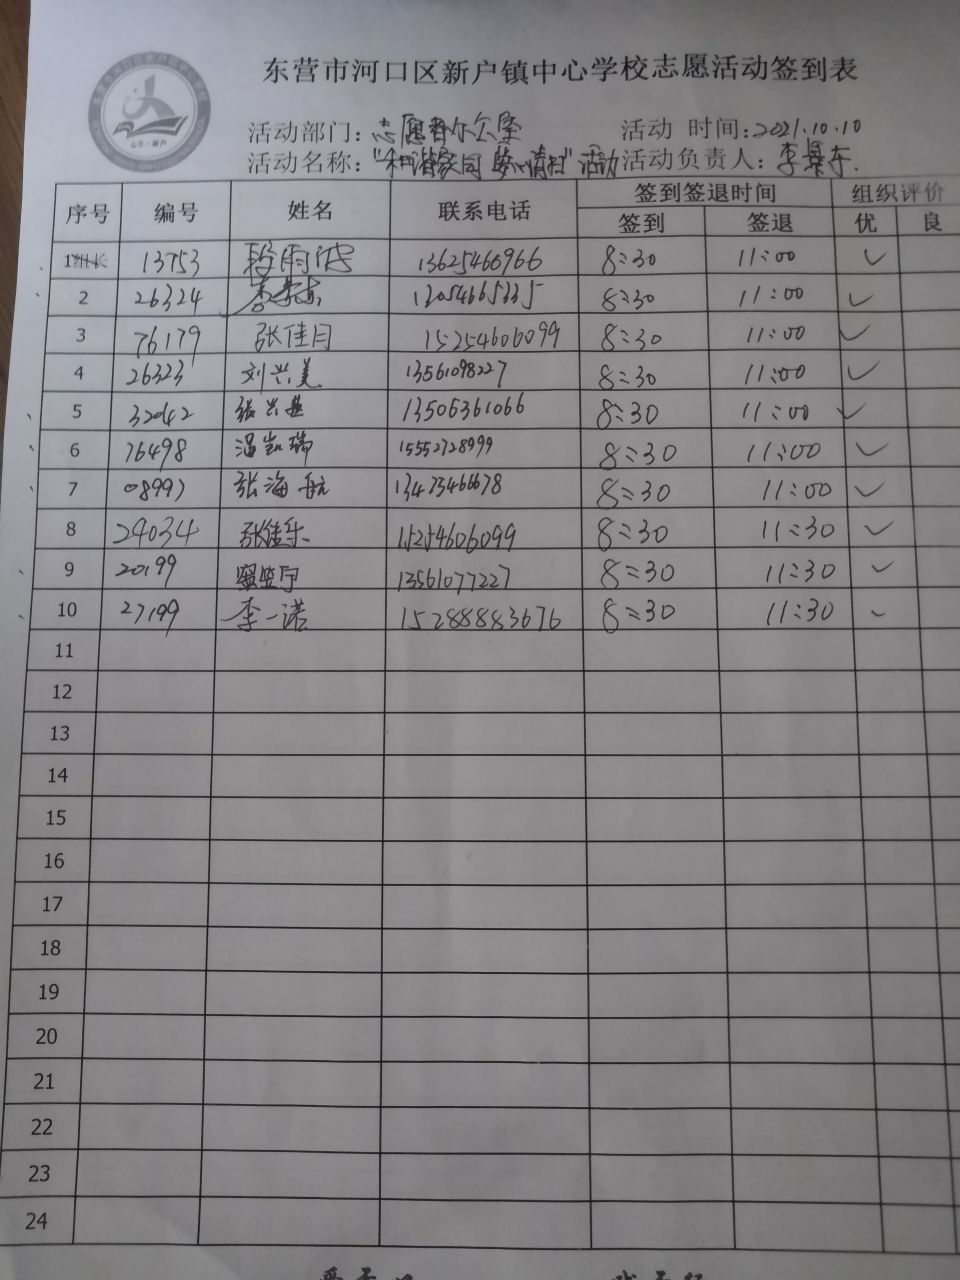 东营市河口区新户镇中心学校志愿活动签到表
山东·新户
活动部门：志愿者办公室 活动 时间：2021.10.10
活动名称："和谐家园 活动 活动负责人：李景东
序号 编号 姓名 联系电话 签到签退时间 组织评价
签到 签退 优 良
1组长 13753 段雨 13625466966 8:30 11:00 ✓
2 26324 13054665335 8:30 11:00 ✓
3 76179 张佳月 15254606099 8:30 11:00 ✓
4 26323 刘兴美 13561098227 8:30 11:00 ✓
5 32042 张兴 13506361066 8:30 11:00 ✓
6 76498 温凯瑞 15552728999 8:30 11:00 ✓
7 08997 张海航 13475466678 8:30 11:00 ✓
8 24034 张佳乐 15254606099 8:30 11:30 ✓
9 20199 13561077227 8:30 11:30 ✓
10 27199 李一诺 15288883676 8:30 11:30 ✓
11
12
13
14
15
16
17
18
19
20
21
22
23
24